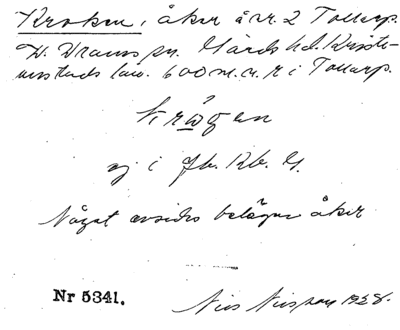 Kroken, åker å nr. 2 Tollarp.
V. Vrams sn. Gärds hd. Kristi-
anstads län. 600 m. n. r i Tollarp.
krogen
ej i Jb. Rb. G.
Något avsides belägen åker
Nr 5341.
Nils Nilsson 1928.